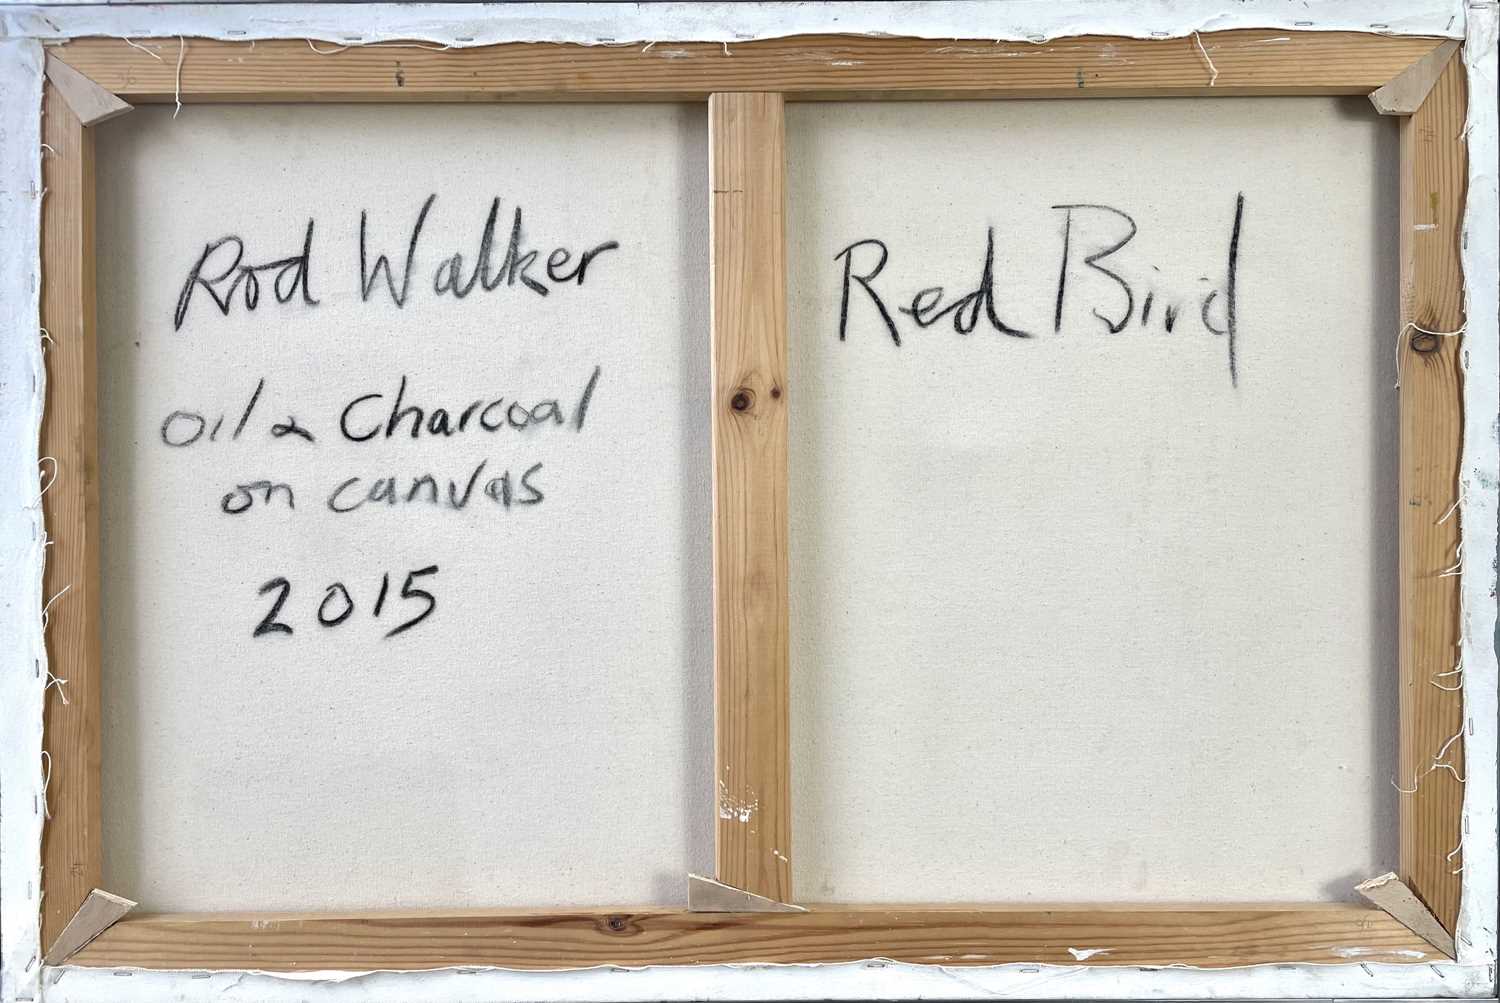 Rod Walker
Oil & Charcoal
on canvas
2015
Red Bird